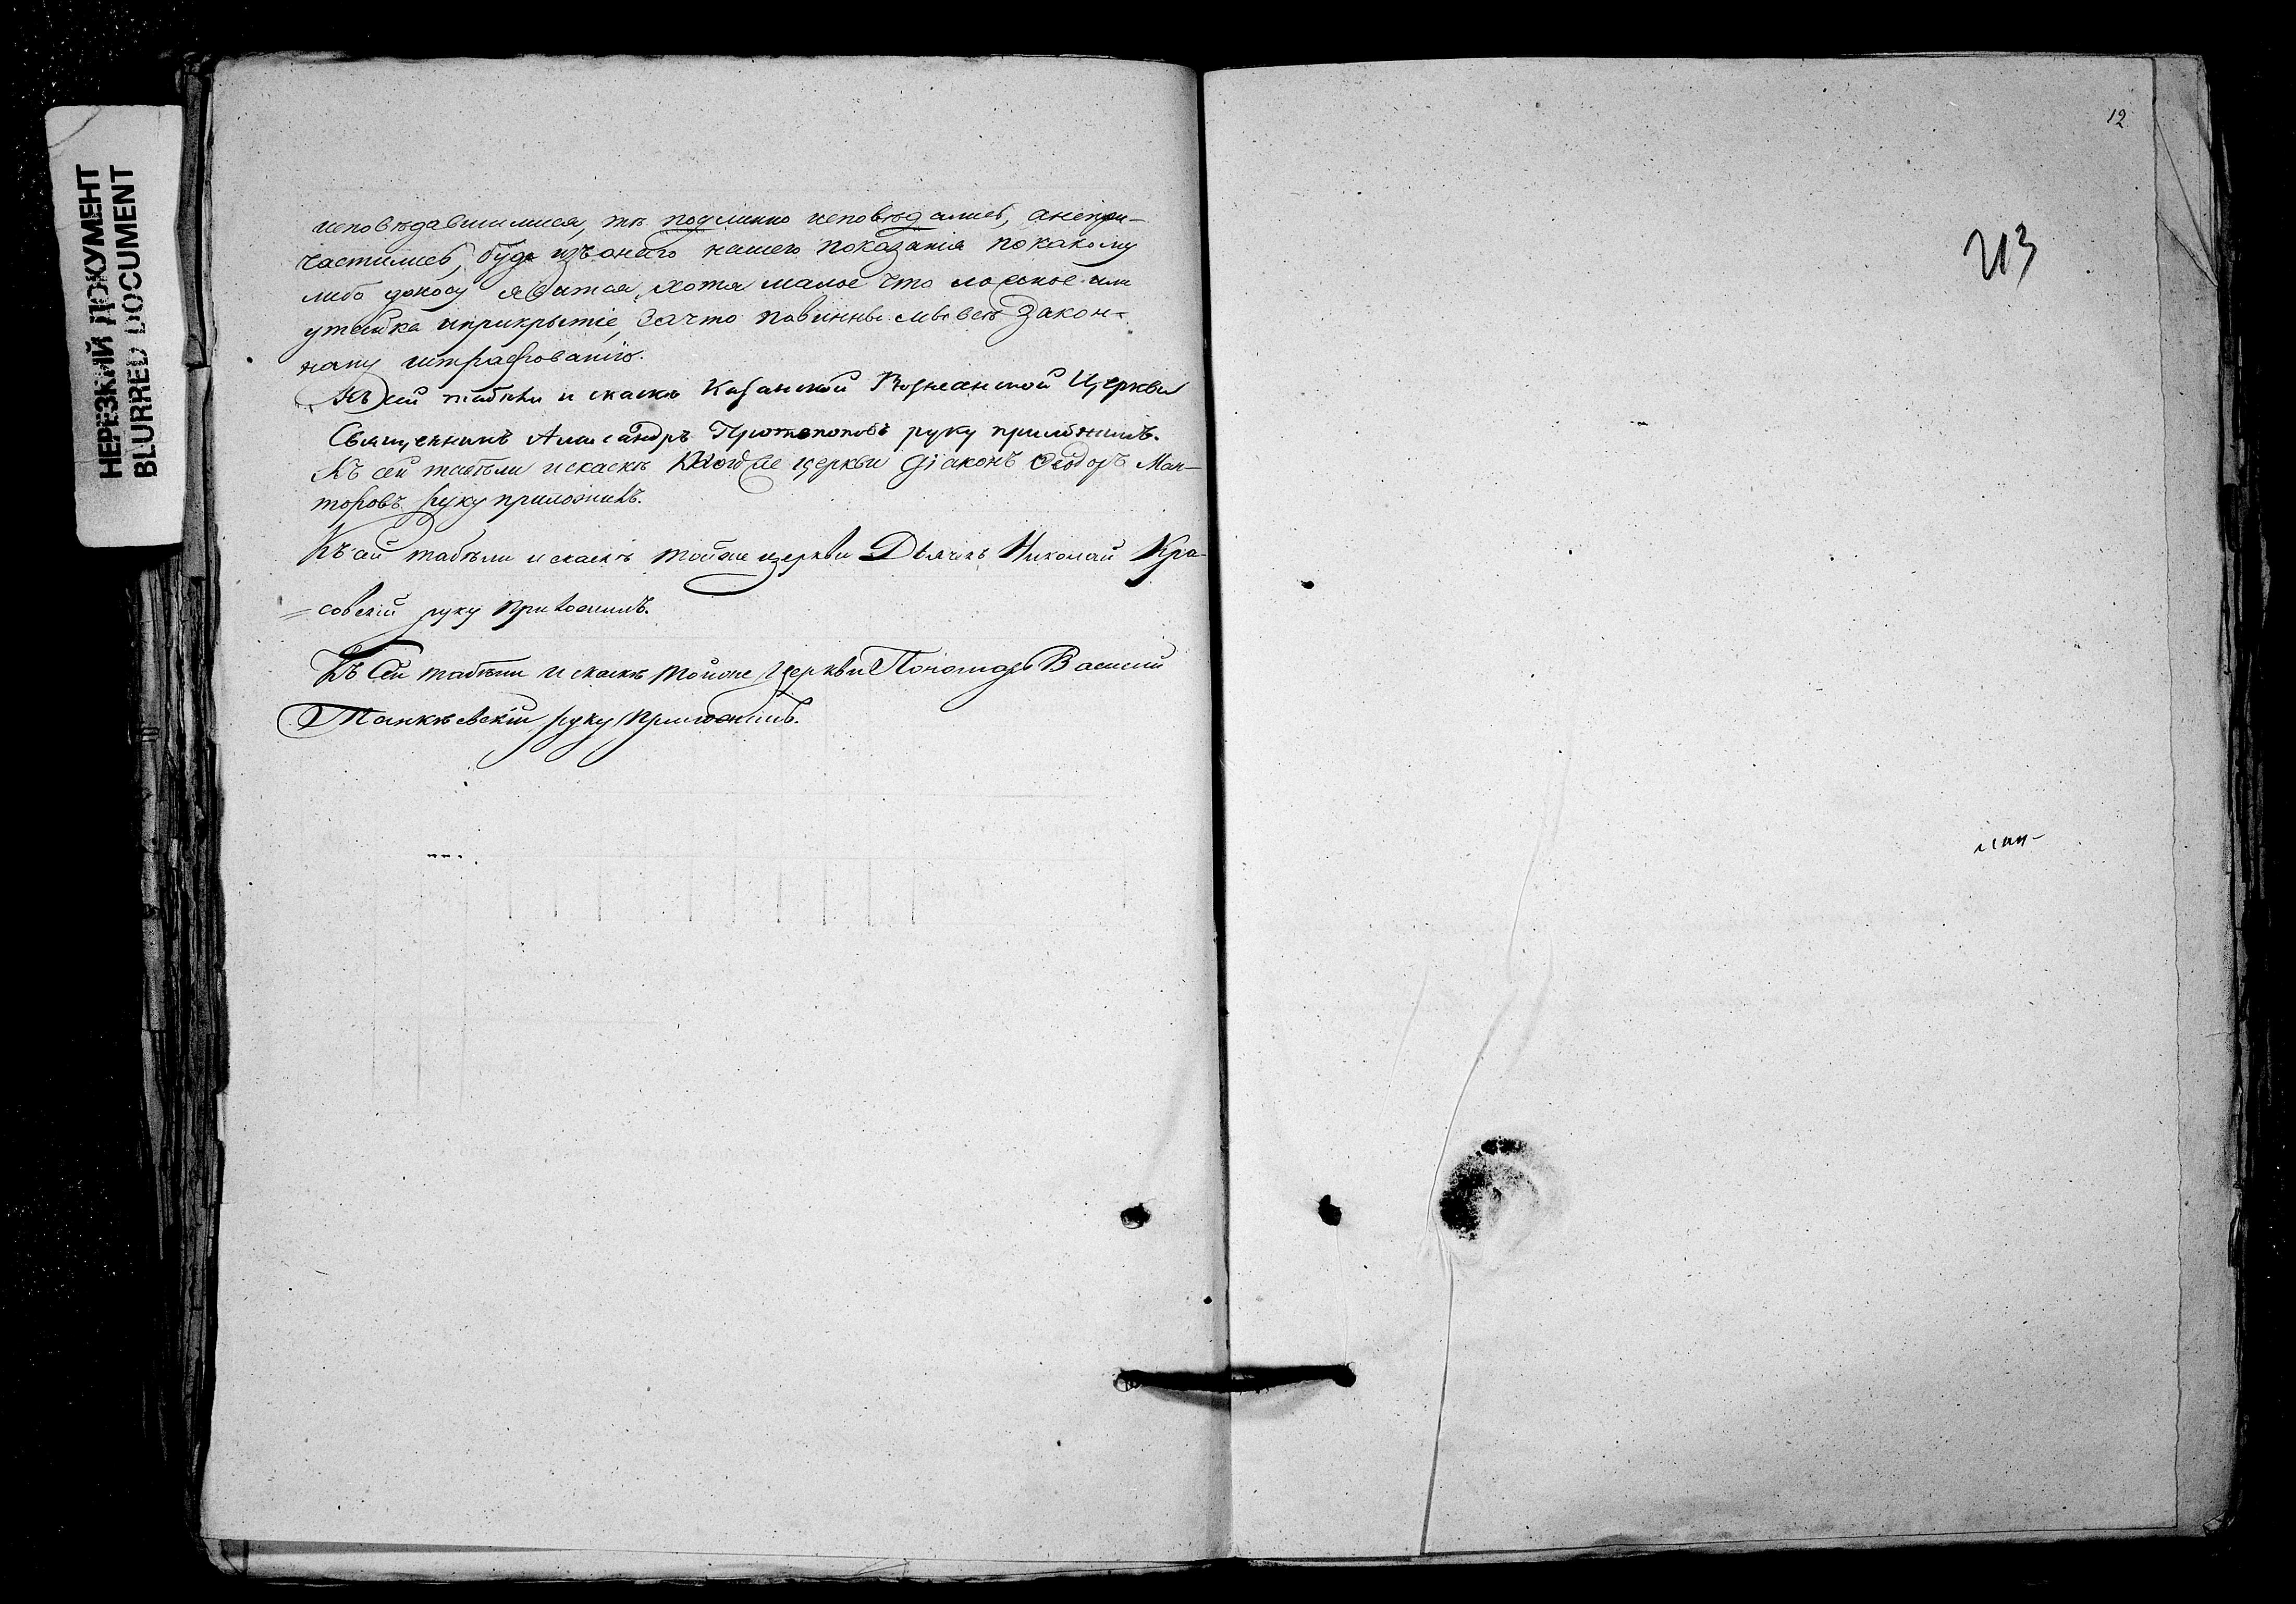 НЕРЕЗКИЙ ДОКУМЕНТ
BLURRED DOCUMENT
исповѣдавшимися, тѣ подлинно исповѣдались, анепри-
частились, буде изъонаго нашего показанія покакому
либо доносу явится, хотя малое что ложное или
утайка иприкрытіе, зачто повинны мы всѣ закон-
ному штрафованію.
Къ сей табели и скаскѣ Казанской Вознесенской Церкви
Священникъ Александръ Протопоповъ руку приложилъ.
Къ сей табѣли искаскѣ тойже церкви Діаконъ Ѳеодоръ Ман-
торовъ руку приложилъ.
Къ сей табѣли искаскѣ тойже церкви Дьячекъ Николай Кра-
=совскій руку приложилъ.
Къ Сей табѣли искаскѣ тойже церкви Пономарь Василій
Танкѣевскій руку приложилъ.
12
213